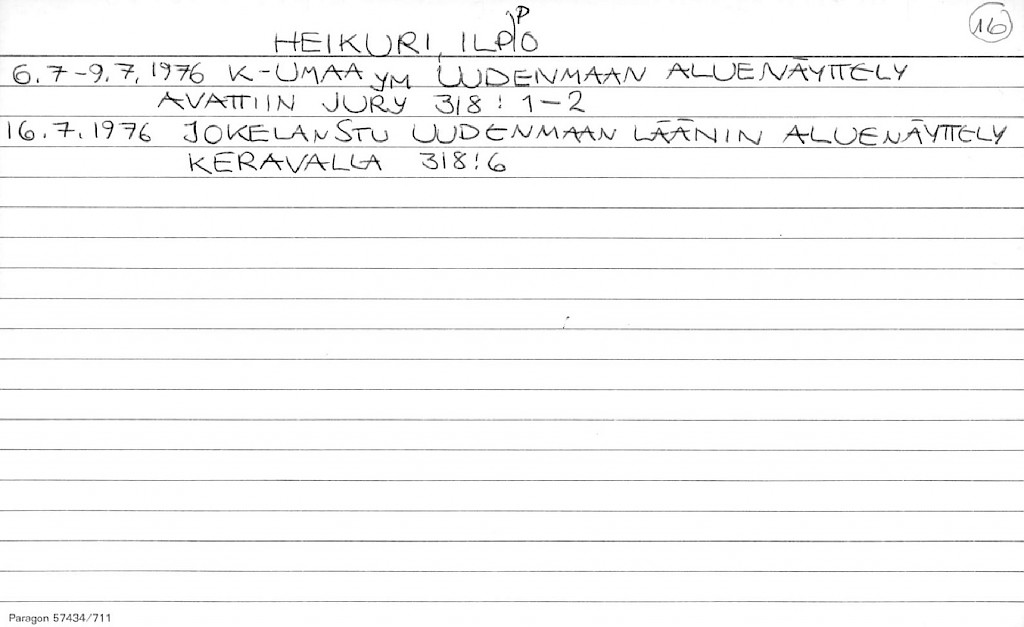 16
HEIKURI, ILPPO
6.7-9.7.1976 K-UMAA YM UUDENMAAN ALUENÄYTTELY
AVATTIIN JURY 318:1-2
16.7.1976 JOKELAN STU UUDENMAAN LÄÄNIN ALUENÄYTTELY
KERAVALLA 318:6
Paragon 57434/711